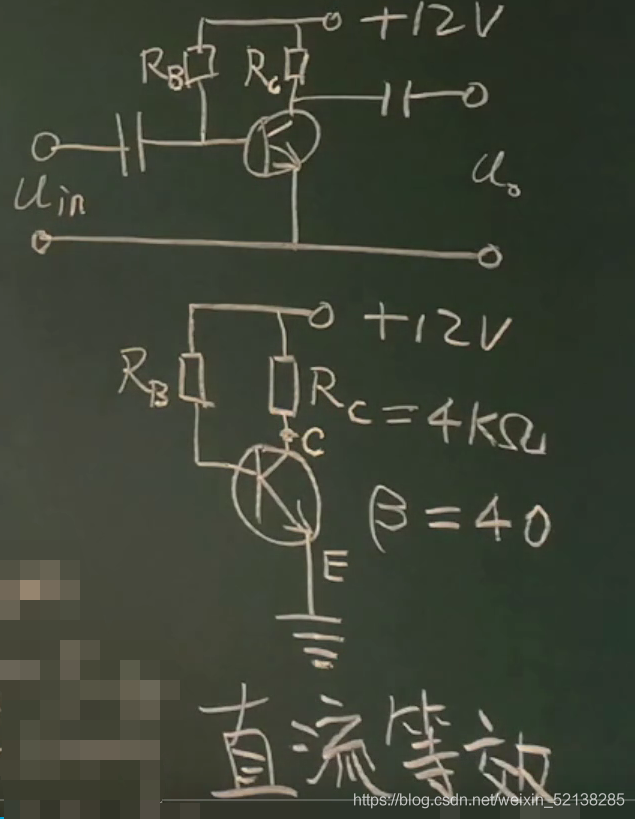 +12V
R_B R_C
U_in
U_o
+12V
R_B
R_C=4KΩ
C
β=40
E
直流等效
https://blog.csdn.net/weixin_52138285